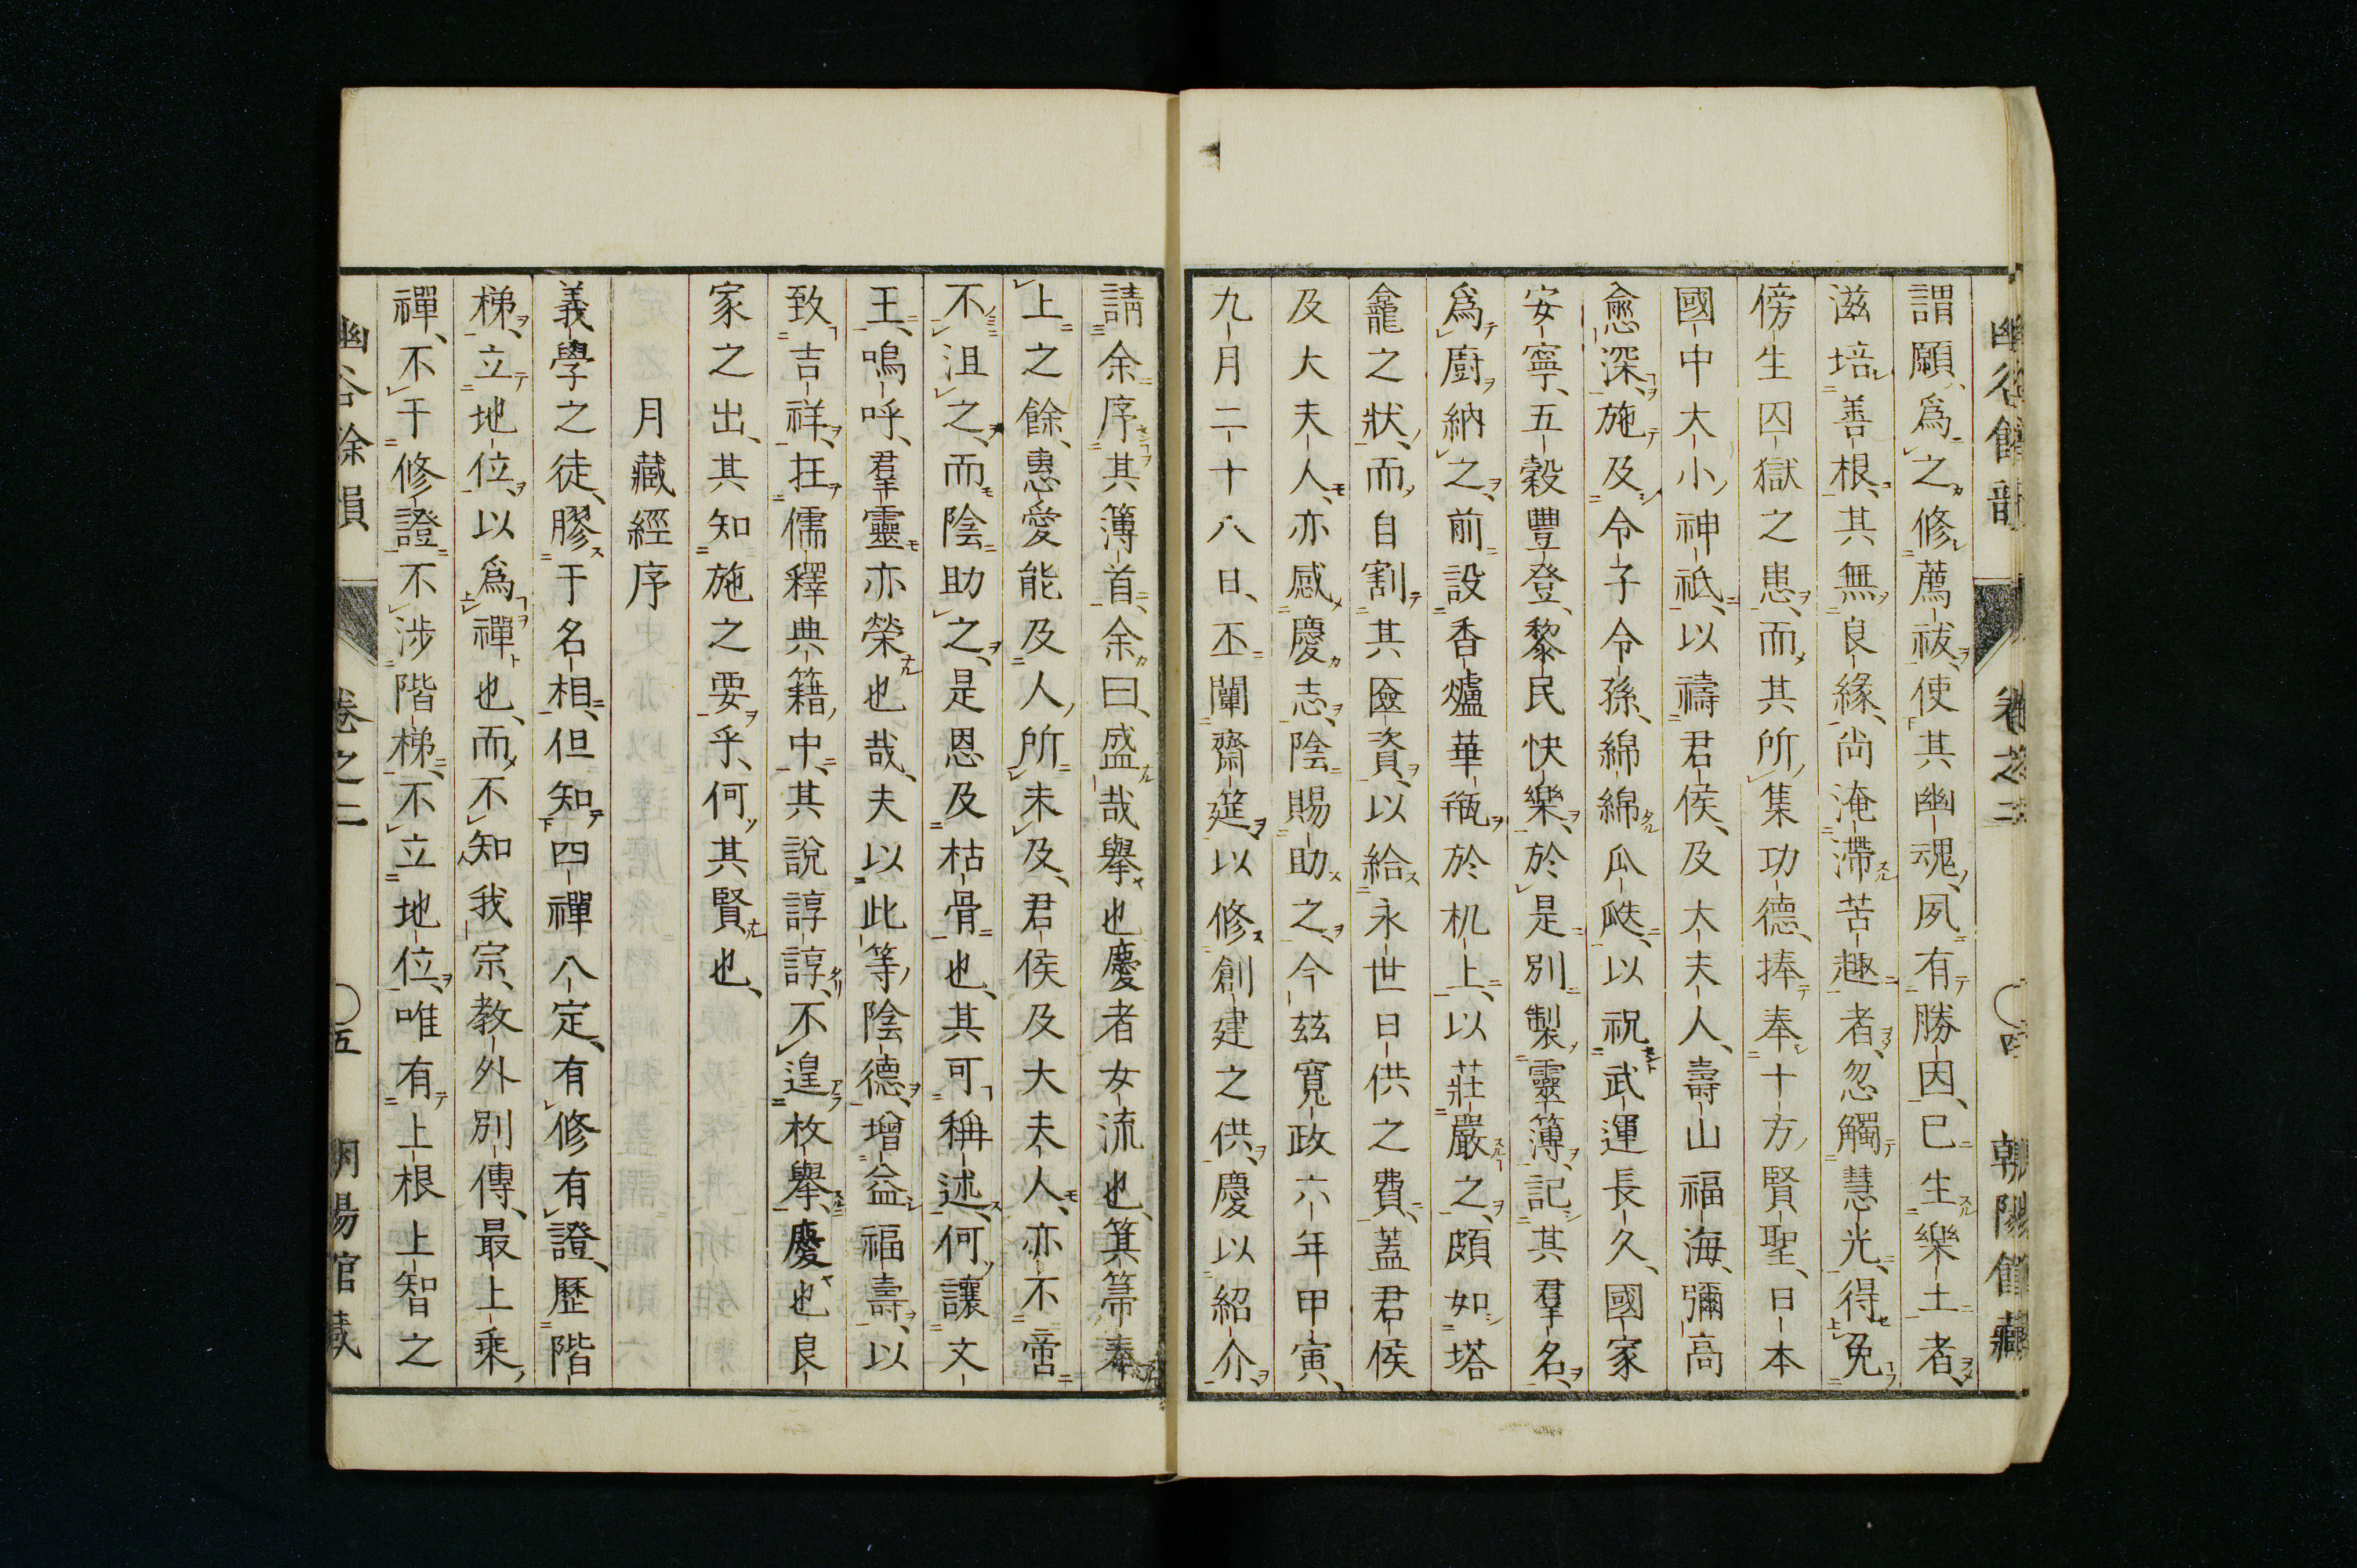 幽谷餘韻 卷之二 ○四 朝陽館藏
謂願爲之修薦祓使其幽魂夙有勝因已生樂土者
滋培善根其無良緣尚淹滯苦趣者忽觸慧光得免
傍生囚獄之患而其所集功德捧奉十方賢聖日本
國中大小神祇以禱君侯及大夫人壽山福海彌高
愈深施及令子令孫綿綿瓜瓞以祝武運長久國家
安寧五穀豐登黎民快樂於是別製靈簿記其羣名
爲廚納之前設香爐華瓶於机上以莊嚴之頗如塔
龕之狀而自割其匳資以給永世日供之費蓋君侯
及大夫人亦感慶志陰賜助之今茲寬政六年甲寅
九月二十八日丕闡齋筵以修創建之供慶以紹介
請余序其簿首余曰盛哉擧也慶者女流也箕箒奉
上之餘惠愛能及人所未及君侯及大夫人亦不啻
不沮之而陰助之是恩及枯骨也其可稱述何讓文
王嗚呼羣靈亦榮也哉夫以此等陰德增益福壽以
致吉祥抂儒釋典籍中其說諄諄不遑枚擧慶也良
家之出其知施之要乎何其賢也
月藏經序
義學之徒膠于名相但知四禪八定有修有證歷階
梯立地位以爲禪也而不知我宗教外別傳最上乘
禪不干修證不涉階梯不立地位唯有上根上智之
幽谷餘韻 卷之二 ○五 朝陽館藏